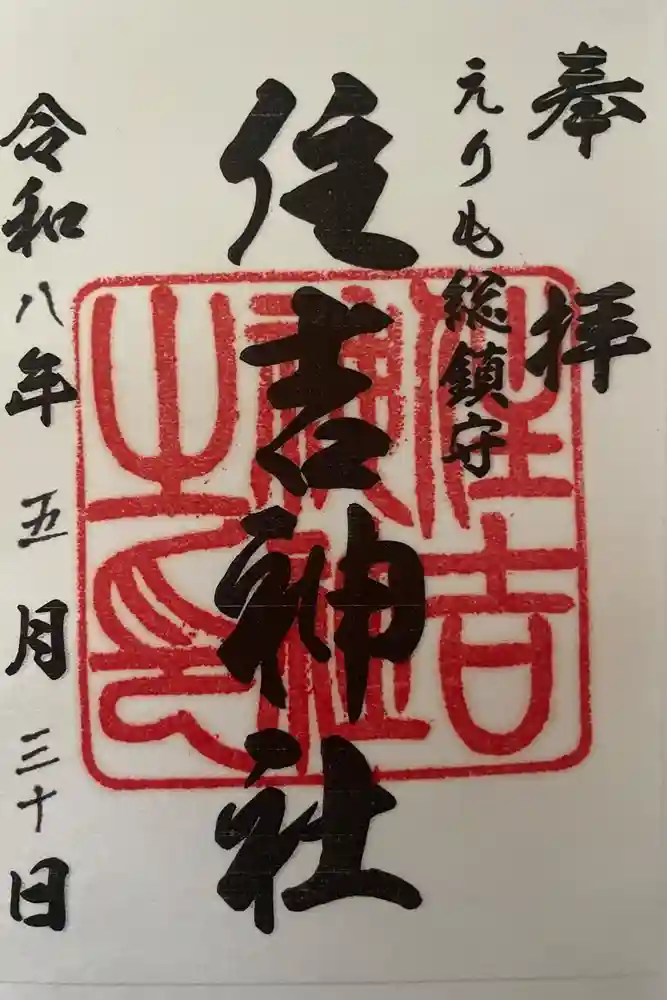 奉拝
えりも総鎮守
住吉神社
令和八年五月三十日
住吉
神社
之印